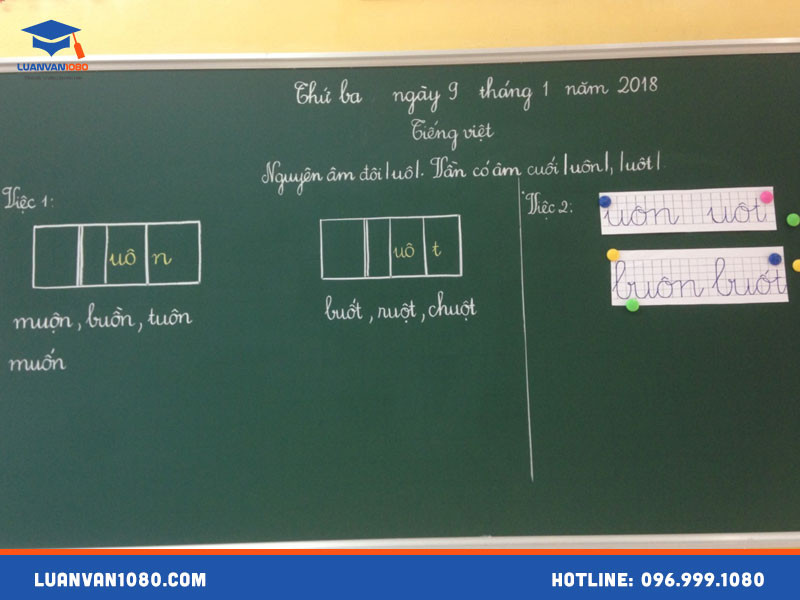 LUANVAN1080
Thứ ba ngày 9 tháng 1 năm 2018
Tiếng việt
Nguyên âm đôi |uô|. Vần có âm cuối |uôn|, |uôt|
Việc 1:
uô n
muộn, buồn, tuôn
muốn
uô t
buốt, ruột, chuột
Việc 2:
uôn uôt
buôn buốt
LUANVAN1080.COM
HOTLINE: 096.999.1080